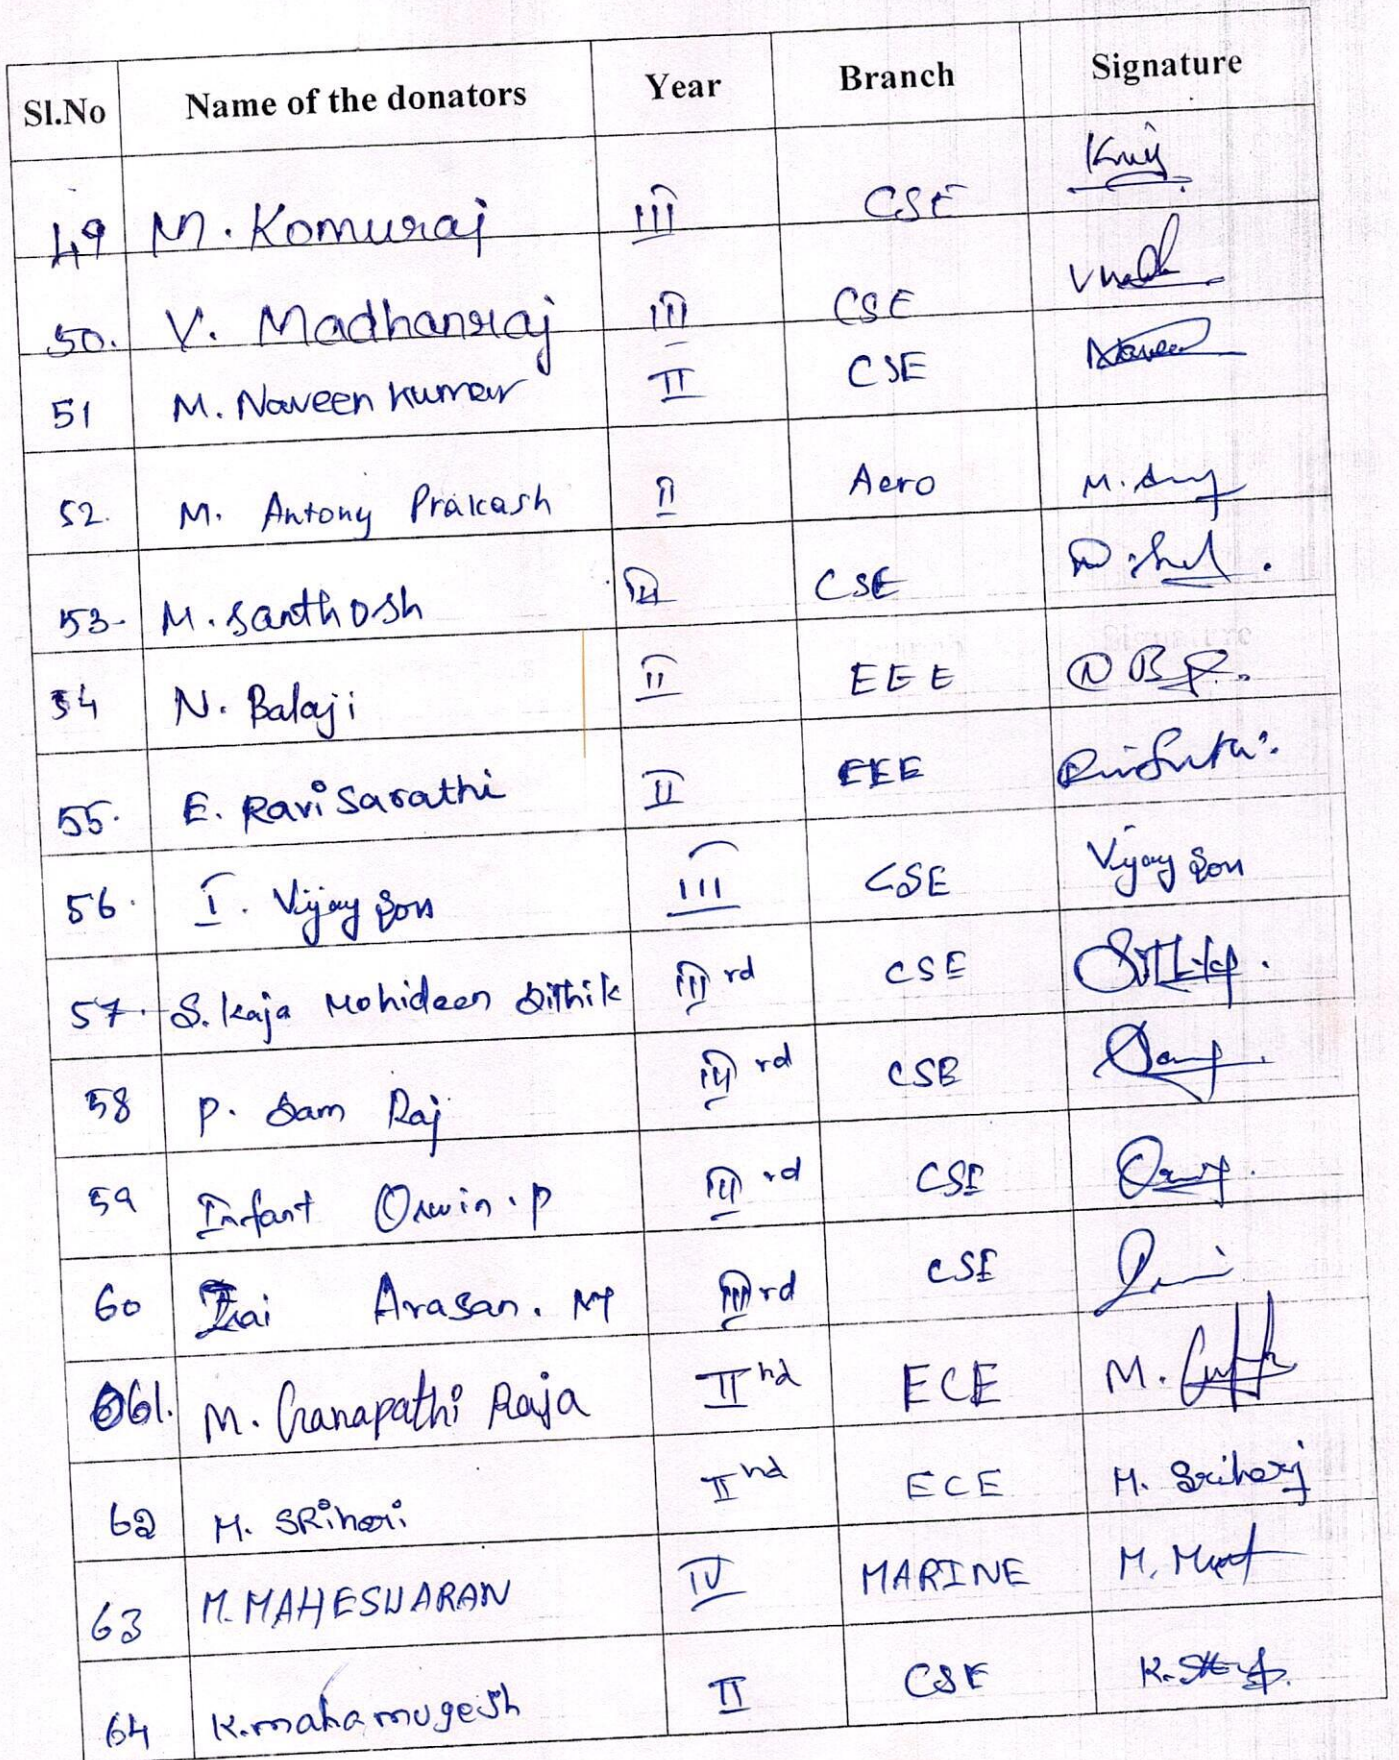 Sl.No Name of the donators Year Branch Signature
49 M. Komuraj III CSE
50. V. Madhanraj III CSE
51 M. Naveen Kumar II CSE Naveen
52. M. Antony Prakash II Aero
53. M. Santhosh III CSE
54 N. Balaji II EEE
55. E. Ravi Sarathi II EEE
56. I. Vijay Son III CSE Vijay Son
57. S. Kaja Mohideen Sithik III rd CSE
58 P. Sam Raj III rd CSE
59 Infant Orwin. P III rd CSE
60 Arasan. M III rd CSE
61. M. Ganapathi Raja II nd ECE M.
62 M. SRihari II nd ECE M. Srihari
63 M. MAHESWARAN IV MARINE M.
64 K. mahamugesh II CSE